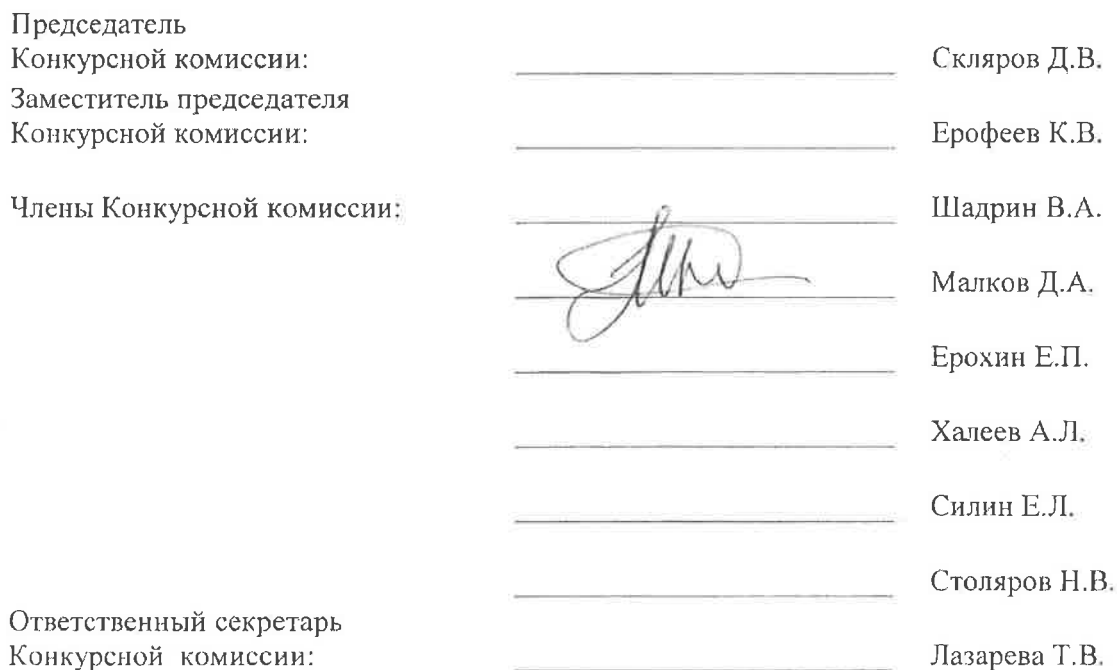 Председатель
Конкурсной комиссии: Скляров Д.В.
Заместитель председателя
Конкурсной комиссии: Ерофеев К.В.
Члены Конкурсной комиссии: Шадрин В.А.
Малков Д.А.
Ерохин Е.П.
Халеев А.Л.
Силин Е.Л.
Столяров Н.В.
Ответственный секретарь
Конкурсной комиссии: Лазарева Т.В.